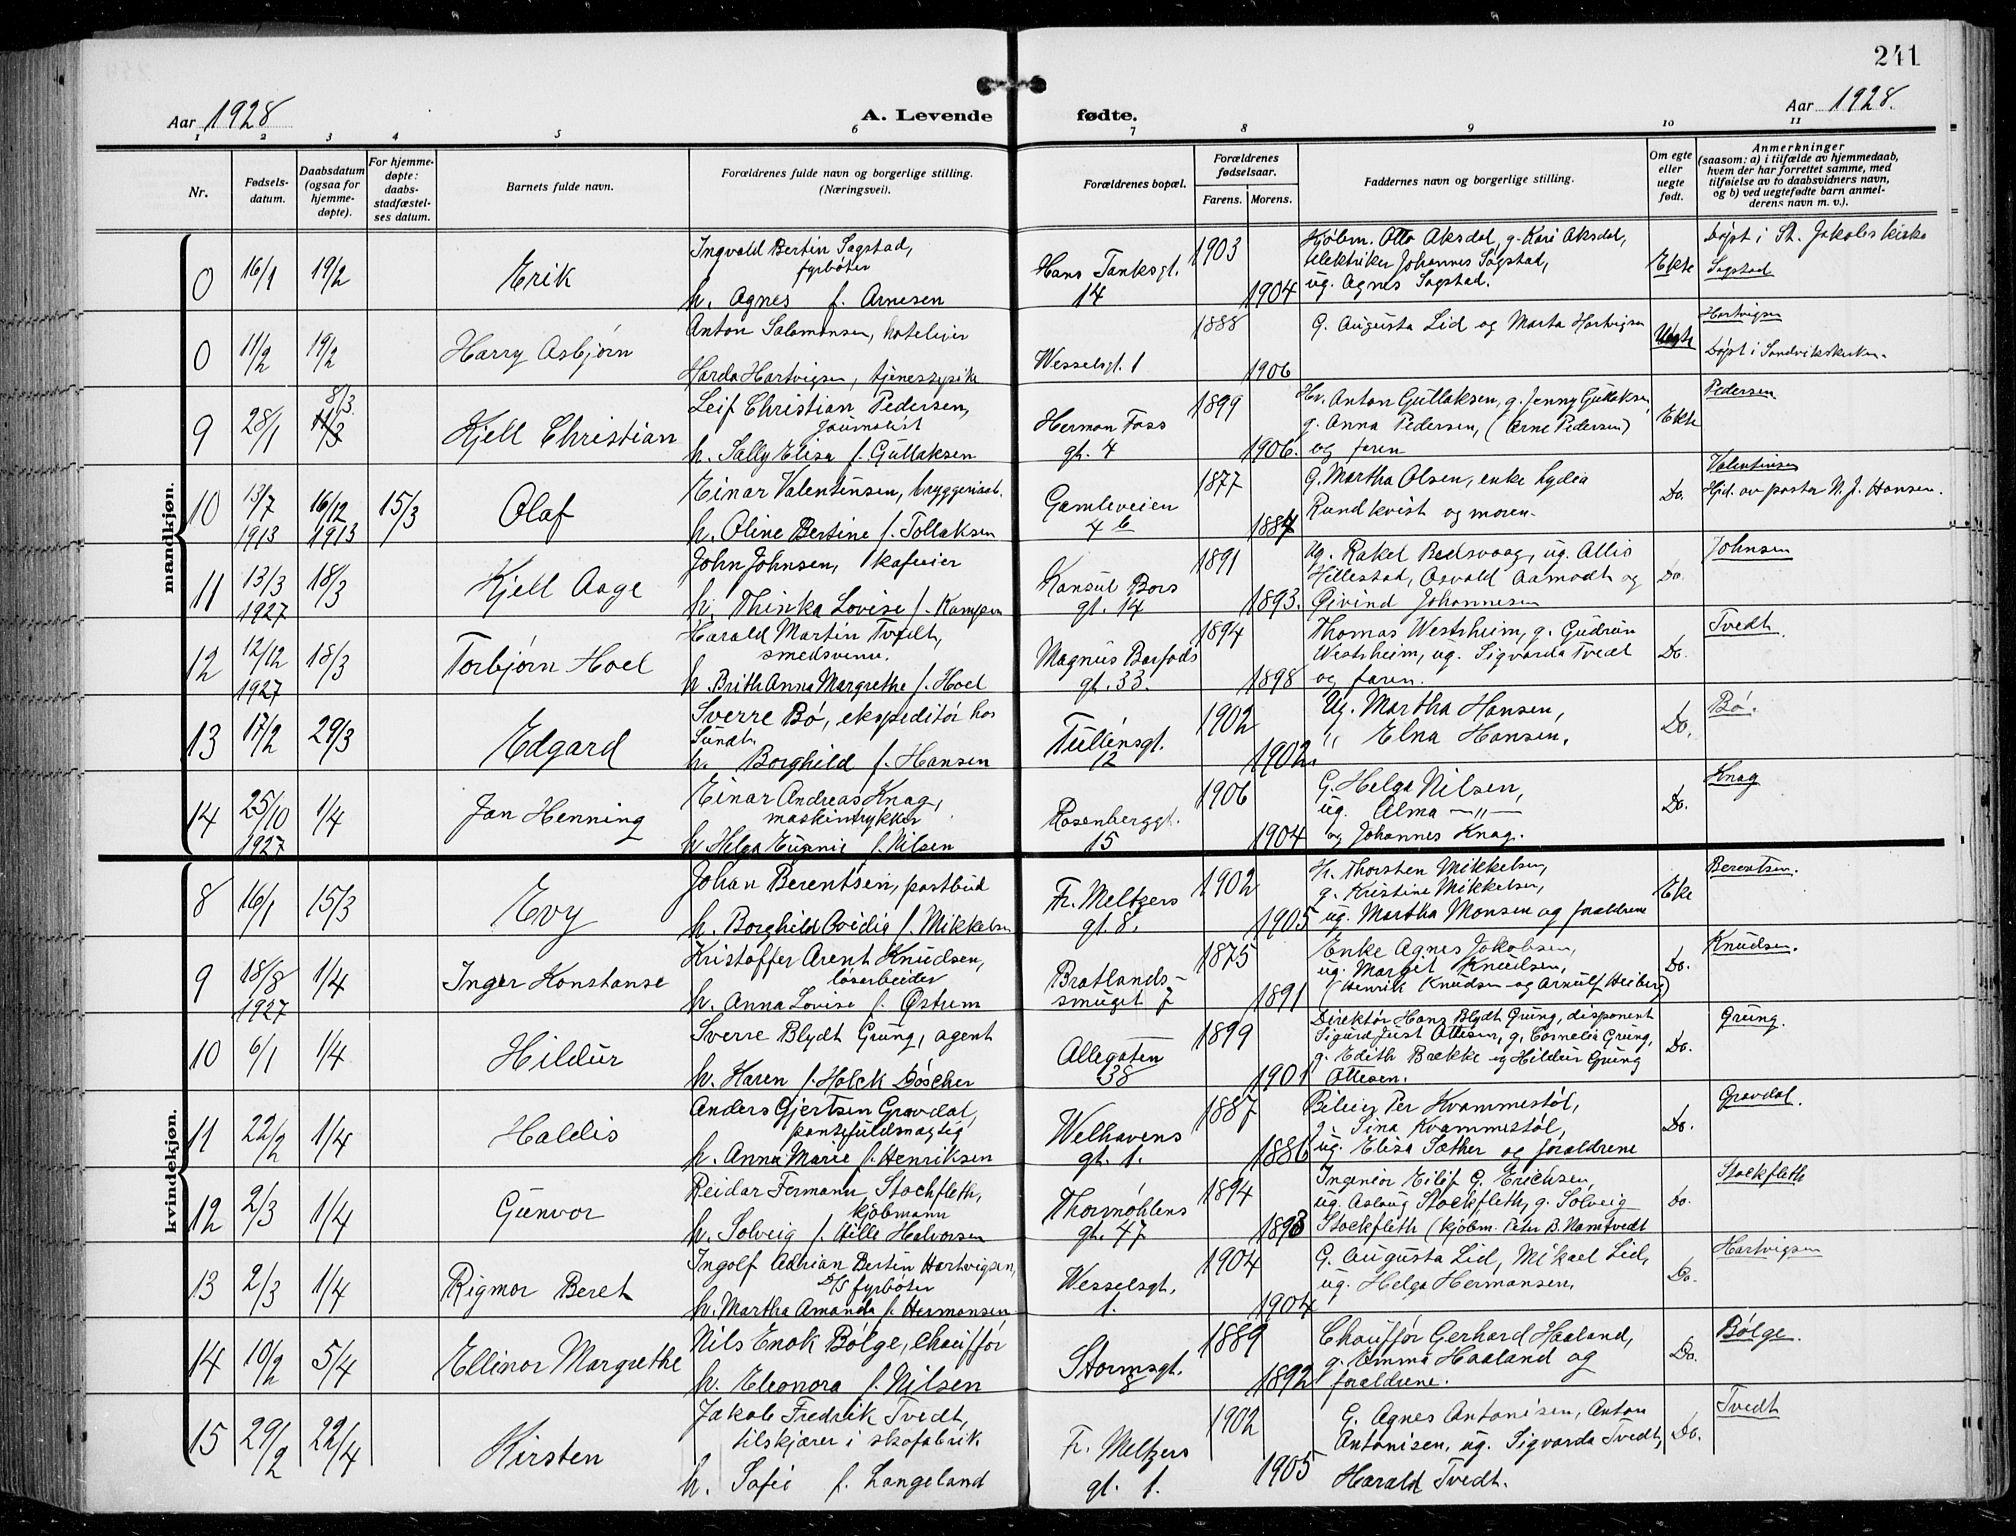 241
Aar 1928
A. Levende
fødte.
Aar 1928.
1 2 3 4 5 6 7 8 9 10 11
Nr.
Fødselsdatum.
Daabsdatum (ogsaa for hjemmedøpte).
For hjemmedøpte: daabsstadfæstelses datum.
Barnets fulde navn.
Forældrenes fulde navn og borgerlige stilling. (Næringsvei).
Forældrenes bopæl.
Forældrenes fødselsaar.
Farens. Morens.
Faddernes navn og borgerlige stilling.
Om egte eller uegte født.
Anmerkninger (saasom: a) i tilfælde av hjemmedaab, hvem der har forrettet samme, med tilføielse av to daabsvidners navn, og b) ved uegtefødte barn anmelderens navn m. v.).
mandkjøn.
0 16/1 19/2 Erik
Ingvald Bertin Sagstad,
fyrbøter
h. Agnes f. Arnesen
Hans Tanksgt.
14
1903
1904
Kjøbm. Otto Aksdal, g. Kari Aksdal,
elektriker Johannes Sagstad,
ug. Agnes Sagstad.
Ekte
Døpt i St. Jakobs kirke
Sagstad
0 11/2 19/2 Harry Asbjørn
Anton Salomonsen, hotelier
Harda Hartvigsen, tjenestepike
Wesselsgt. 1
1888
1906
G. Augusta Lid og Marta Hartvigsen
Uegte
Hartvigsen
Døpt i Sandvikskirken.
9 28/1 8/3 11/3 Kjell Christian
Leif Christian Pedersen,
journalist
h. Sally Elisa f. Gullaksen
Herman Foss
gt. 4
1899
1906.
Hr. Anton Gullaksen, g. Jenny Gullaksen,
g. Anna Pedersen, (Arne Pedersen)
og faren
Ekte
Pedersen
10 13/7 1913 16/12 1913 15/3 Olaf
Einar Valentinsen, bryggeriarb.
h. Oline Bertine f. Tollaksen
Gamleveien
4 b
1877
1884
G. Martha Olsen, enke Lydia
Rundkvist og moren.
Do.
Valentinsen
Hjd. av pastor N. J. Hansen.
11 13/3 1927 18/3 Kjell Aage
John Johnsen, kafeeier
h. Thinka Lovise f. Kampen
Konsul Børs
gt. 14
1891
1893.
Ug. Rakel Bedsvaag, ug. Allis
Hillestad, Osvald Aamodt og
Øivind Johannesen
Do.
Johnsen
12 12/12 1927 18/3 Torbjørn Hoel
Harald Martin Tvedt,
smedsvenn.
h. Brith Anna Margrethe f. Hoel
Magnus Barfods
gt. 33.
1894
1898
Thomas Westrheim, g. Gudrun
Westrheim, ug. Sigvarda Tvedt
og faren.
Do.
Tvedt
13 17/2 29/3 Edgard
Sverre Bø, ekspeditør hos
Sundt.
h. Borghild f. Hansen
Tullinsgt.
12
1902
1902.
Ug. Martha Hansen,
,, Elna Hansen.
Do.
Bø.
14 25/10 1927 1/4 Jan Henning
Einar Andreas Knag,
maskintrykker
h. Helga Eugenie f. Nilsen
Rosenberggt.
15
1906
1904
G. Helga Nilsen,
ug. Alma —,,—
og Johannes Knag.
Do.
Knag
kvindekjøn.
8 16/1 15/3 Evy
Johan Berentsen, postbud
h. Borghild Ovidia f. Mikkelsen
Fr. Meltzers
gt. 8.
1902
1905
Hr. Thorsten Mikkelsen,
g. Kristine Mikkelsen,
ug. Martha Monsen og foraldrene
Eke
Berentsen.
9 18/8 1927 1/4 Inger Konstanse
Kristoffer Arent Knudsen,
løsarbeider
h. Anna Lovise f. Østrem
Bratlands-
smuget 7
1875
1891
Enke Agnes Jakobsen,
ug. Margit Knudsen,
(Henrik Knudsen og Arnulf Heiberg)
Do.
Knudsen.
10 6/1 1/4 Hildur
Sverre Blydt Grung, agent
h. Karen f. Holck Døscher
Allegaten
38
1899
1901
Direktør Hans Blydt Grung, disponent
Sigurd Just Ottesen, g. Cornelia Grung,
g. Edith Brekke og Hildur Grung
Ottesen.
Do.
Grung.
11 22/2 1/4 Haldis
Anders Gjertsen Gravdal,
pantefuldmægtig
h. Anna Marie f. Henriksen
Welhavens
gt. 1.
1887
1886
Bileier Per Kvammestøl,
g. Sina Kvammestøl,
ug. Elisa Sæther og foraldrene
Do.
Gravdal.
12 2/3 1/4 Gunvor
Reidar Fermann Stockfleth,
kjøbmann
h. Solveig f. Hille Halvorsen
Thormøhlens
gt. 47
1894
1893
Ingeniør Eilif G. Erichsen,
ug. Aslaug Stockfleth, g. Solveig
Stockfleth (kjøbm. Peter B. Namtvedt
Do.
Stockfleth
13 2/3 1/4 Rigmor Beret
Ingolf Adrian Bertin Hartvigsen,
D/S fyrbøter
h. Martha Amanda f. Hermansen
Wesselsgt.
1.
1904
1904
G. Augusta Lid, Mikael Lid,
ug. Helga Hermansen.
Do.
Hartvigsen
14 10/2 5/4 Ellinor Margrethe
Nils Enok Bølge, chauffør
h. Eleonora f. Nilsen
Stormsgt.
8
1889
1892
Chauffør Gerhard Haaland,
g. Emma Haaland og
foraldrene.
Do.
Bølge.
15 29/2 22/4 Kirsten
Jakob Fredrik Tvedt,
tilskjærer i skofabrik.
h. Sofie f. Langeland
Fr. Meltzers
gt. 1.
1902
1905
G. Agnes Antonisen, Anton
Antonisen, ug. Sigvarda Tvedt,
Harald Tvedt.
Do.
Tvedt